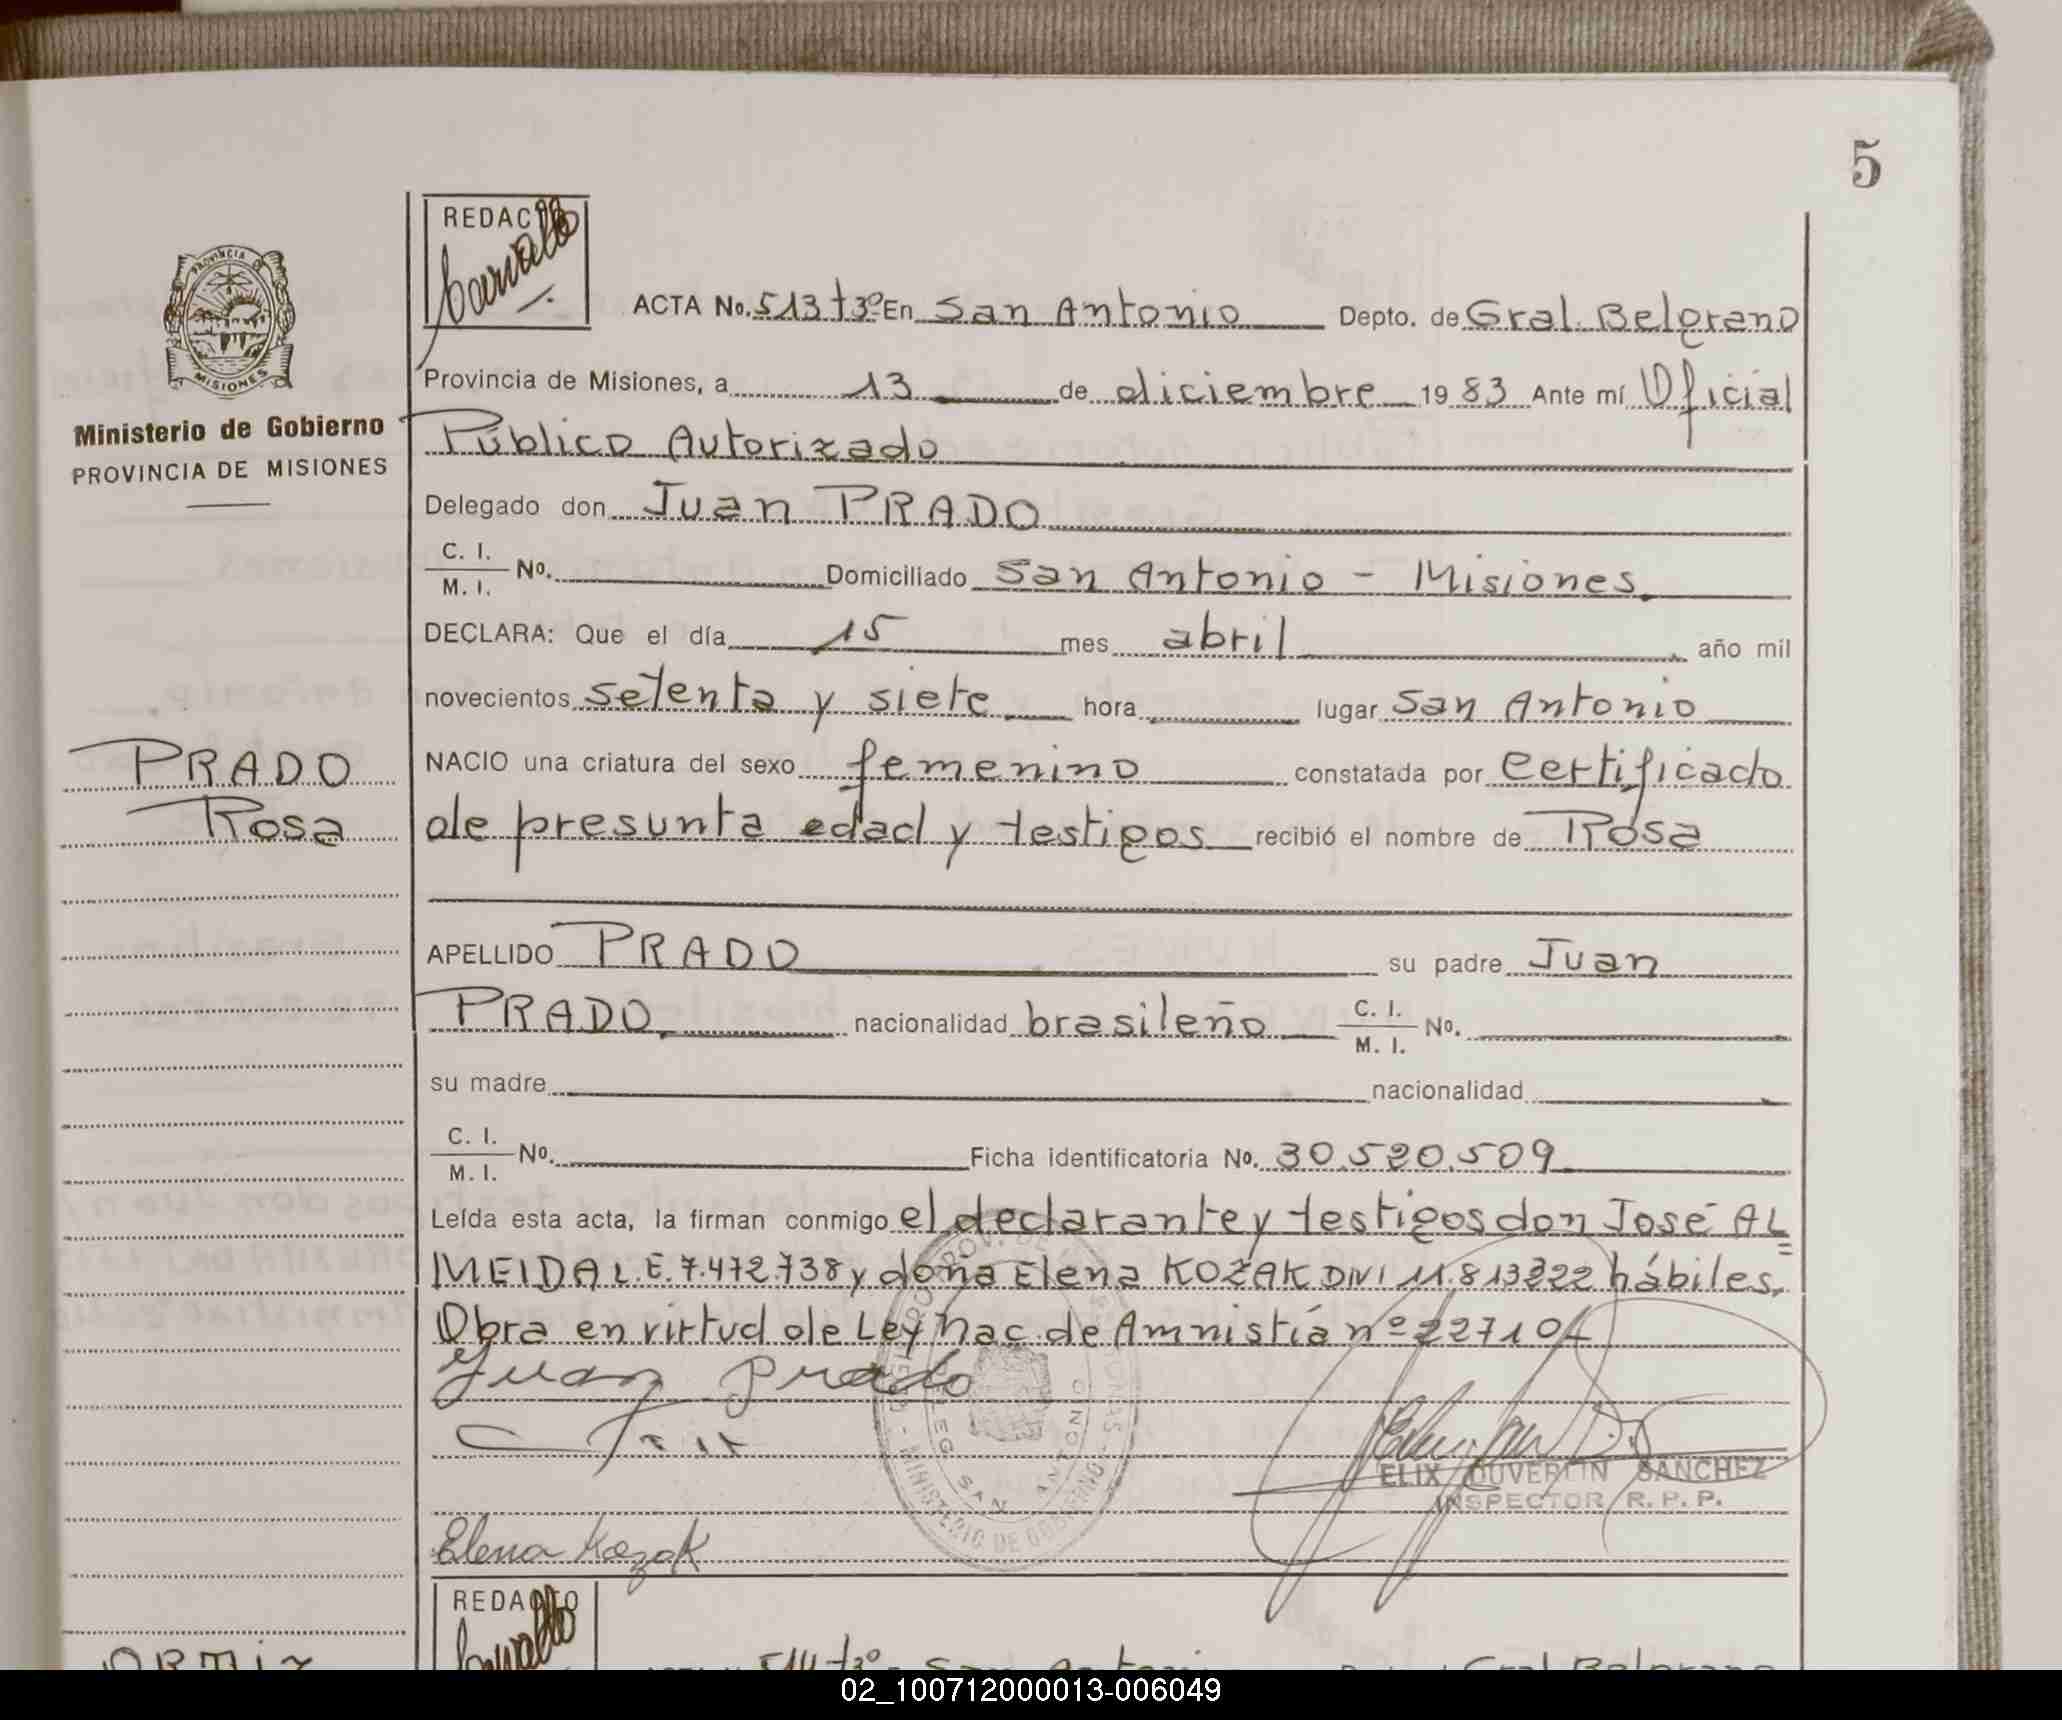 5
REDACTO
Carvallo
PROVINCIA DE
MISIONES
Ministerio de Gobierno
PROVINCIA DE MISIONES
ACTA No. 513 tº3º En San Antonio Depto. de Gral. Belgrano
Provincia de Misiones, a 13 de diciembre 19 83 Ante mí Oficial
Público Autorizado
Delegado don Juan PRADO
C. I.
M. I. No. Domiciliado San Antonio - Misiones.
DECLARA: Que el día 15 mes abril año mil
novecientos setenta y siete hora lugar San Antonio
PRADO
Rosa
NACIO una criatura del sexo femenino constatada por certificado
de presunta edad y testigos recibió el nombre de Rosa
APELLIDO PRADO su padre Juan
PRADO. nacionalidad brasileño C. I.
M. I. No.
su madre nacionalidad
C. I.
M. I. No. Ficha identificatoria No. 30.520.509
Leída esta acta, la firman conmigo el declarante y testigos don José AL=
MEIDA L.E. 7.472.738 y doña Elena KOZAK DNI 11.813222 hábiles.
Obra en virtud de Ley Nac. de Amnistía nº 22710-
Juan Prado
DELEG. SAN ANTONIO
MINISTERIO DE GOBIERNO
ELIX DUVERLIN SANCHEZ
INSPECTOR R. P. P.
Elena Kozak
REDACTO
Carvallo
ORTIZ
514 tº3º San Antonio Gral Belgrano
02_100712000013-006049